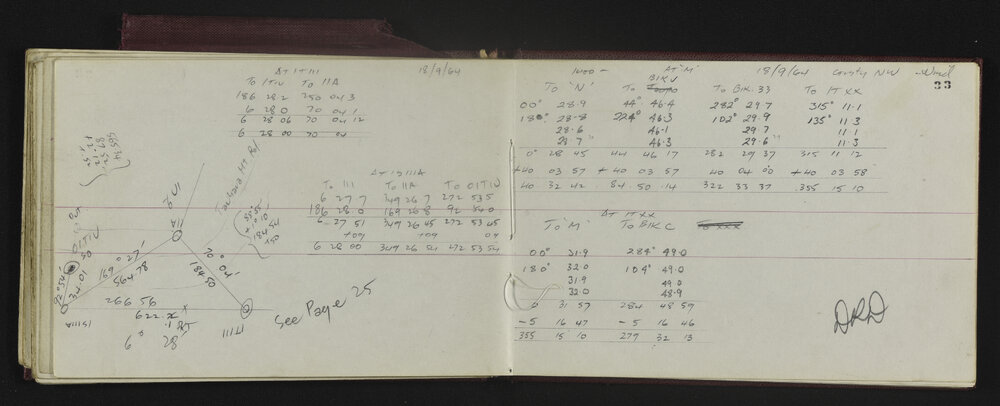 AT IT III 18/9/64
TO ITIV TO IIA
186 28.2 250 04.3
6 28.0 70 04.1
6 28 06 70 04 12
6 28 00 70 04
AT 15 IIIA
TO III TO IIA TO OITIV
6 27.7 349 26.7 272 53.5
186 28.0 169 26.8 92 54.0
6 27 51 349 26 45 272 53 45
+09 +09 09
6 28 00 349 26 54 272 53 54
IIA
70° 04'
184.50
169° 27'
564.78
266 56
622.
6° 28'
15IIIA
17III
OITIV
See Page 25
1400 - AT 'M' 18/9/64 Gusty NW Wind
33
BIK J
TO 'N' TO TO BIK. 33 TO IT XX
00° 28.9 44° 46.4 282° 29.7 315° 11.1
180° 28.8 224° 46.3 102° 29.9 135° 11.3
28.6 46.1 29.7 11.1
28.7 46.3 29.6 11.3
0° 28 45 44 46 17 282 29 37 315 11 12
+40 03 57 +40 03 57 40 04 00 +40 03 58
40 32 42 84 50 14 322 33 37 355 15 10
AT IT XX
TO 'M' TO BIK C
00° 31.9 284° 49.0
180° 32.0 104° 49.0
31.9 49.0
32.0 48.9
0 31 57 284 48 59
-5 16 47 -5 16 46
355 15 10 279 32 13
DRD